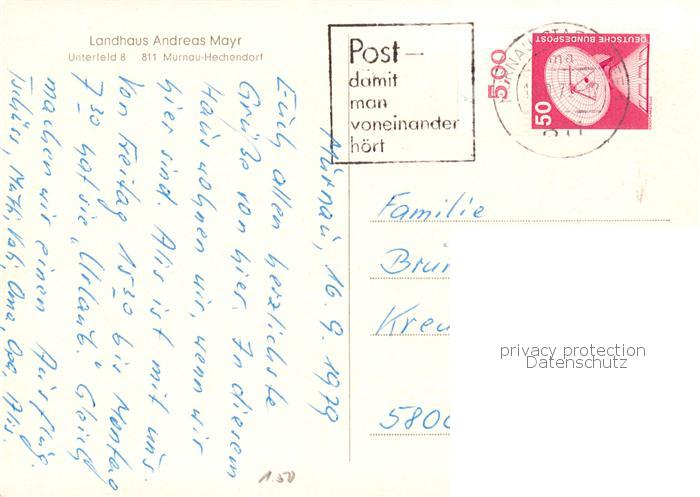 Landhaus Andreas Mayr
Unterfeld 8 811 Murnau-Hechendorf
Post –
damit
man
voneinander
hört
5.00
DEUTSCHE BUNDESPOST
50
Murnau, 16. 9. 1979
Euch allen herzlichste
Grüße von hier. In diesem
Haus wohnen wir, wenn wir
hier sind. Alis ist mit uns.
Von Freitag 15 30 bis Montag
7 30 hat sie „Urlaub." Gleich
machen wir einen Ausflug.
Tschüss, Oma, Opa, Alis.
Familie
Brü
Kreu
580
privacy protection
Datenschutz
1.50